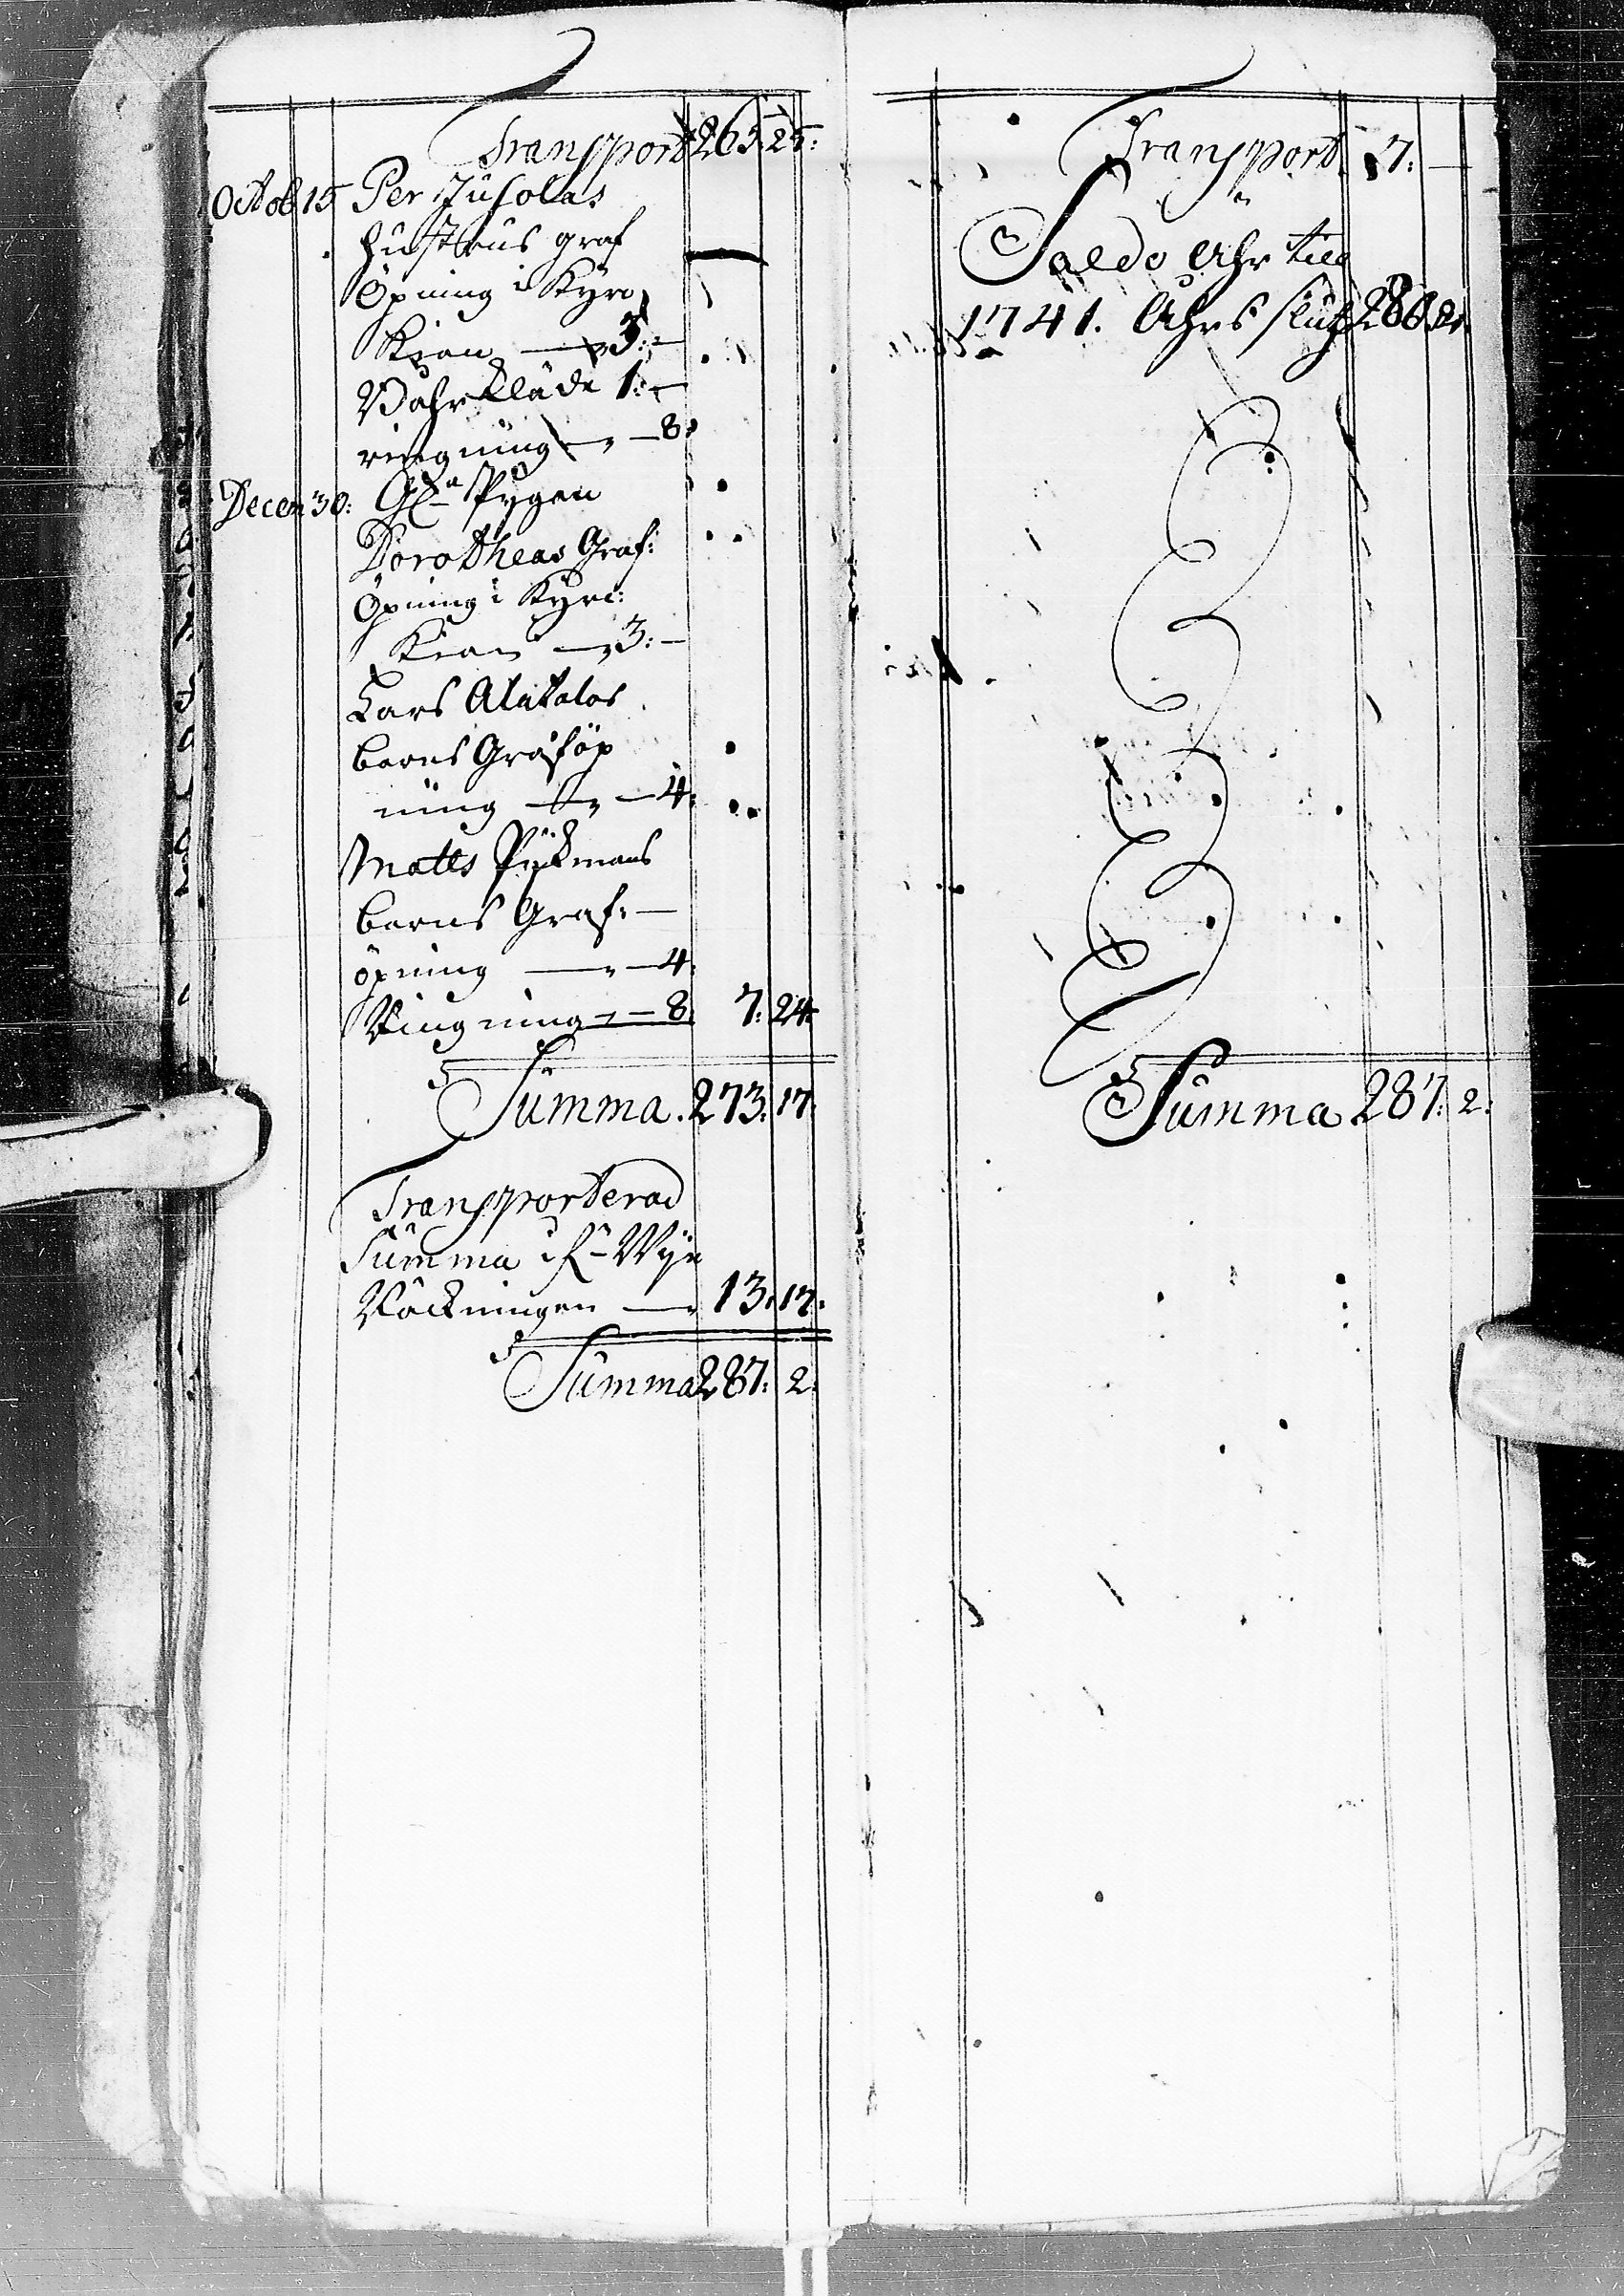 Transport 265: 25:
Octob 15 Per Jusolas
hustrus graf
Öpning i Kyrc
Kian — 3: —
Bahrkläde 1: —
ringning — 8:
Decem 30:
Dorotheas Graf:
Öpning i Kyrc:
Kian — 3: —
Lars Alitalos
barns Graföp
ning — 4:
Matts Pijckmans
barns Graf: —
öpning — 4:
Ringning — 8: 7: 24:
Summa. 273: 17:
Transporterad
Summa i
Räckningen — 13: 17:
Summa 287: 2:
Transport 7: —
Saldo Ahr till
1741. Ahrs slut 286: 2:
Summa 287: 2: